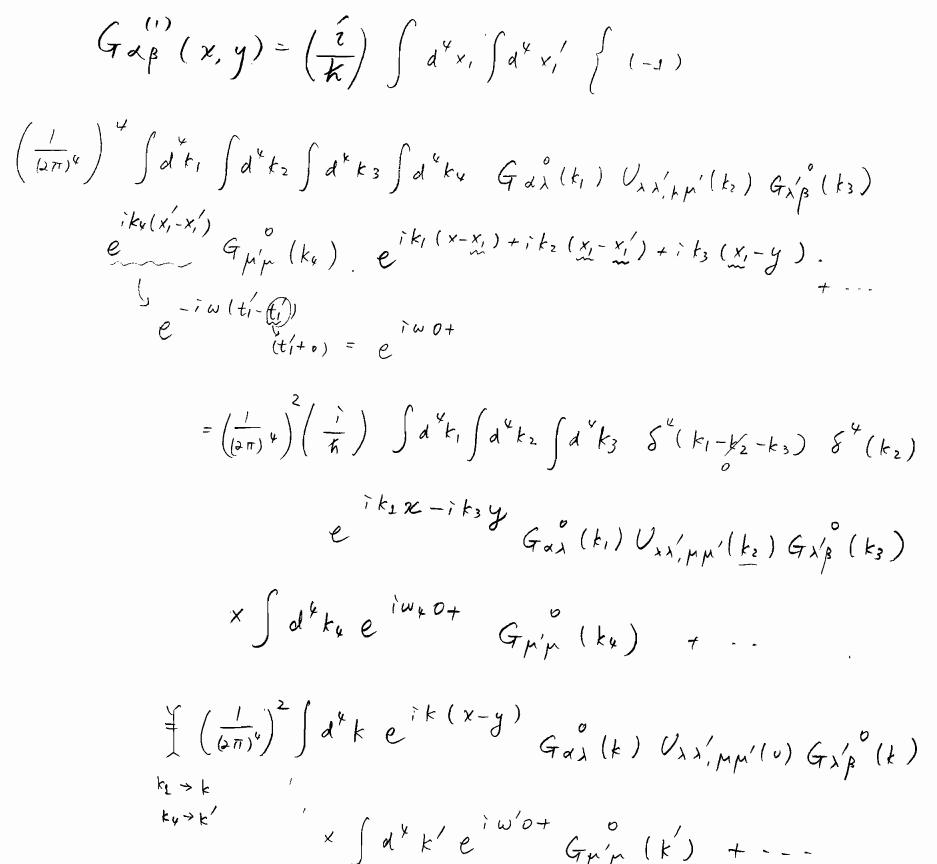 G_{αβ}^{(1)} (x, y) = (i/ħ) ∫ d⁴x₁ ∫ d⁴x₁′ { (-1)
(1/(2π)⁴)⁴ ∫ d⁴k₁ ∫ d⁴k₂ ∫ d⁴k₃ ∫ d⁴k₄ G⁰_{αλ}(k₁) U_{λλ′,μμ′}(k₂) G⁰_{λ′β}(k₃)
e^{ik₄(x₁′-x₁′)} G⁰_{μ′μ}(k₄) . e^{ik₁(x-x₁)+ik₂(x₁-x₁′)+ik₃(x₁-y)} .
+ ...
↳ e^{-iω(t₁′-t₁′)}
(t₁′+0) = e^{iω0+}
= (1/(2π)⁴)² (i/ħ) ∫ d⁴k₁ ∫ d⁴k₂ ∫ d⁴k₃ δ⁴(k₁-k₂-k₃) δ⁴(k₂)
0
e^{ik₁x-ik₃y} G⁰_{αλ}(k₁) U_{λλ′,μμ′}(k₂) G⁰_{λ′β}(k₃)
× ∫ d⁴k₄ e^{iω₄0+} G⁰_{μ′μ}(k₄) + ..
(1/(2π)⁴)² ∫ d⁴k e^{ik(x-y)} G⁰_{αλ}(k) U_{λλ′,μμ′}(0) G⁰_{λ′β}(k)
k₁ → k
k₄ → k′
× ∫ d⁴k′ e^{iω′0+} G⁰_{μ′μ}(k′) + ----